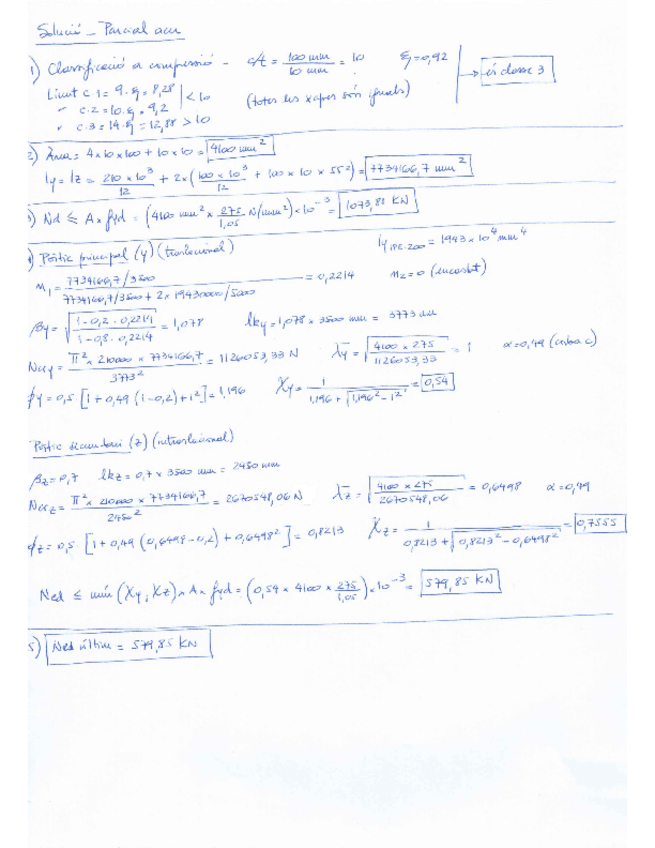 Solució - Parcial acer
1) Classificació a compressió - c/t = 100 mm / 10 mm = 10 ξ = 0,92
Límit c.1 = 9·ξ = 8,28 < 10 → és classe 3
c.2 = 10·ξ = 9,2 (totes les xapes són iguals)
c.3 = 14·ξ = 12,88 > 10
2) Àrea = 4×10×100 + 10×10 = 4100 mm²
Iy = Iz = 210×10³/12 + 2×(100×10³/12 + 100×10×55²) = 7734166,7 mm²
3) Nd ≤ A×fyd = (4100 mm² × 275/1,05 N/mm²)×10⁻³ = 1073,81 KN
4) Pòrtic principal (y) (translacional) Iy IPE-200 = 1943×10⁴ mm⁴
η₁ = 7734166,7/3500 / 7734166,7/3500 + 2×19430000/5000 = 0,2214 η₂ = 0 (encastat)
βy = √(1-0,2·0,2214 / 1-0,8·0,2214) = 1,078 lky = 1,078 × 3500 mm = 3773 mm
Ncry = π² × 210000 × 7734166,7 / 3773² = 1126053,33 N λ̄y = √(4100×275 / 1126053,33) = 1 α = 0,49 (corba c)
ϕy = 0,5·[1+0,49(1-0,2)+1²] = 1,196 χy = 1 / 1,196+√(1,196²-1²) = 0,54
Pòrtic secundari (z) (intraslacional)
βz = 0,7 lkz = 0,7 × 3500 mm = 2450 mm
Ncrz = π² × 210000 × 7734166,7 / 2450² = 2670548,06 N λ̄z = √(4100×275 / 2670548,06) = 0,6498 α = 0,49
ϕz = 0,5·[1+0,49(0,6498-0,2)+0,6498²] = 0,8213 χz = 1 / 0,8213+√(0,8213²-0,6498²) = 0,7555
Ned ≤ mín(χy, χz)×A×fyd = (0,54×4100×275/1,05)×10⁻³ = 579,85 KN
5) Ned últim = 579,85 KN